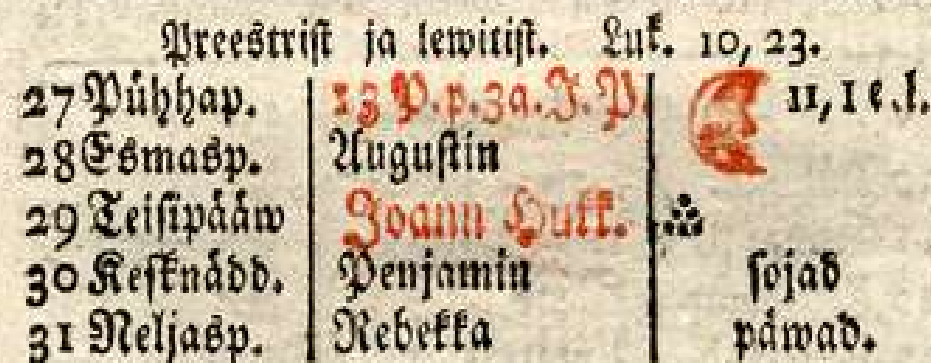 Preestrist ja lewitist. Luk. 10, 23.
27 Pühhap. 13 P. p. 3a. J. P. 11, 1 e. l.
28 Esmasp. Augustin
29 Teisipääw Joann Hukk.
30 Kesknädd. Penjamin sojad
31 Neljasp. Rebekka päwad.